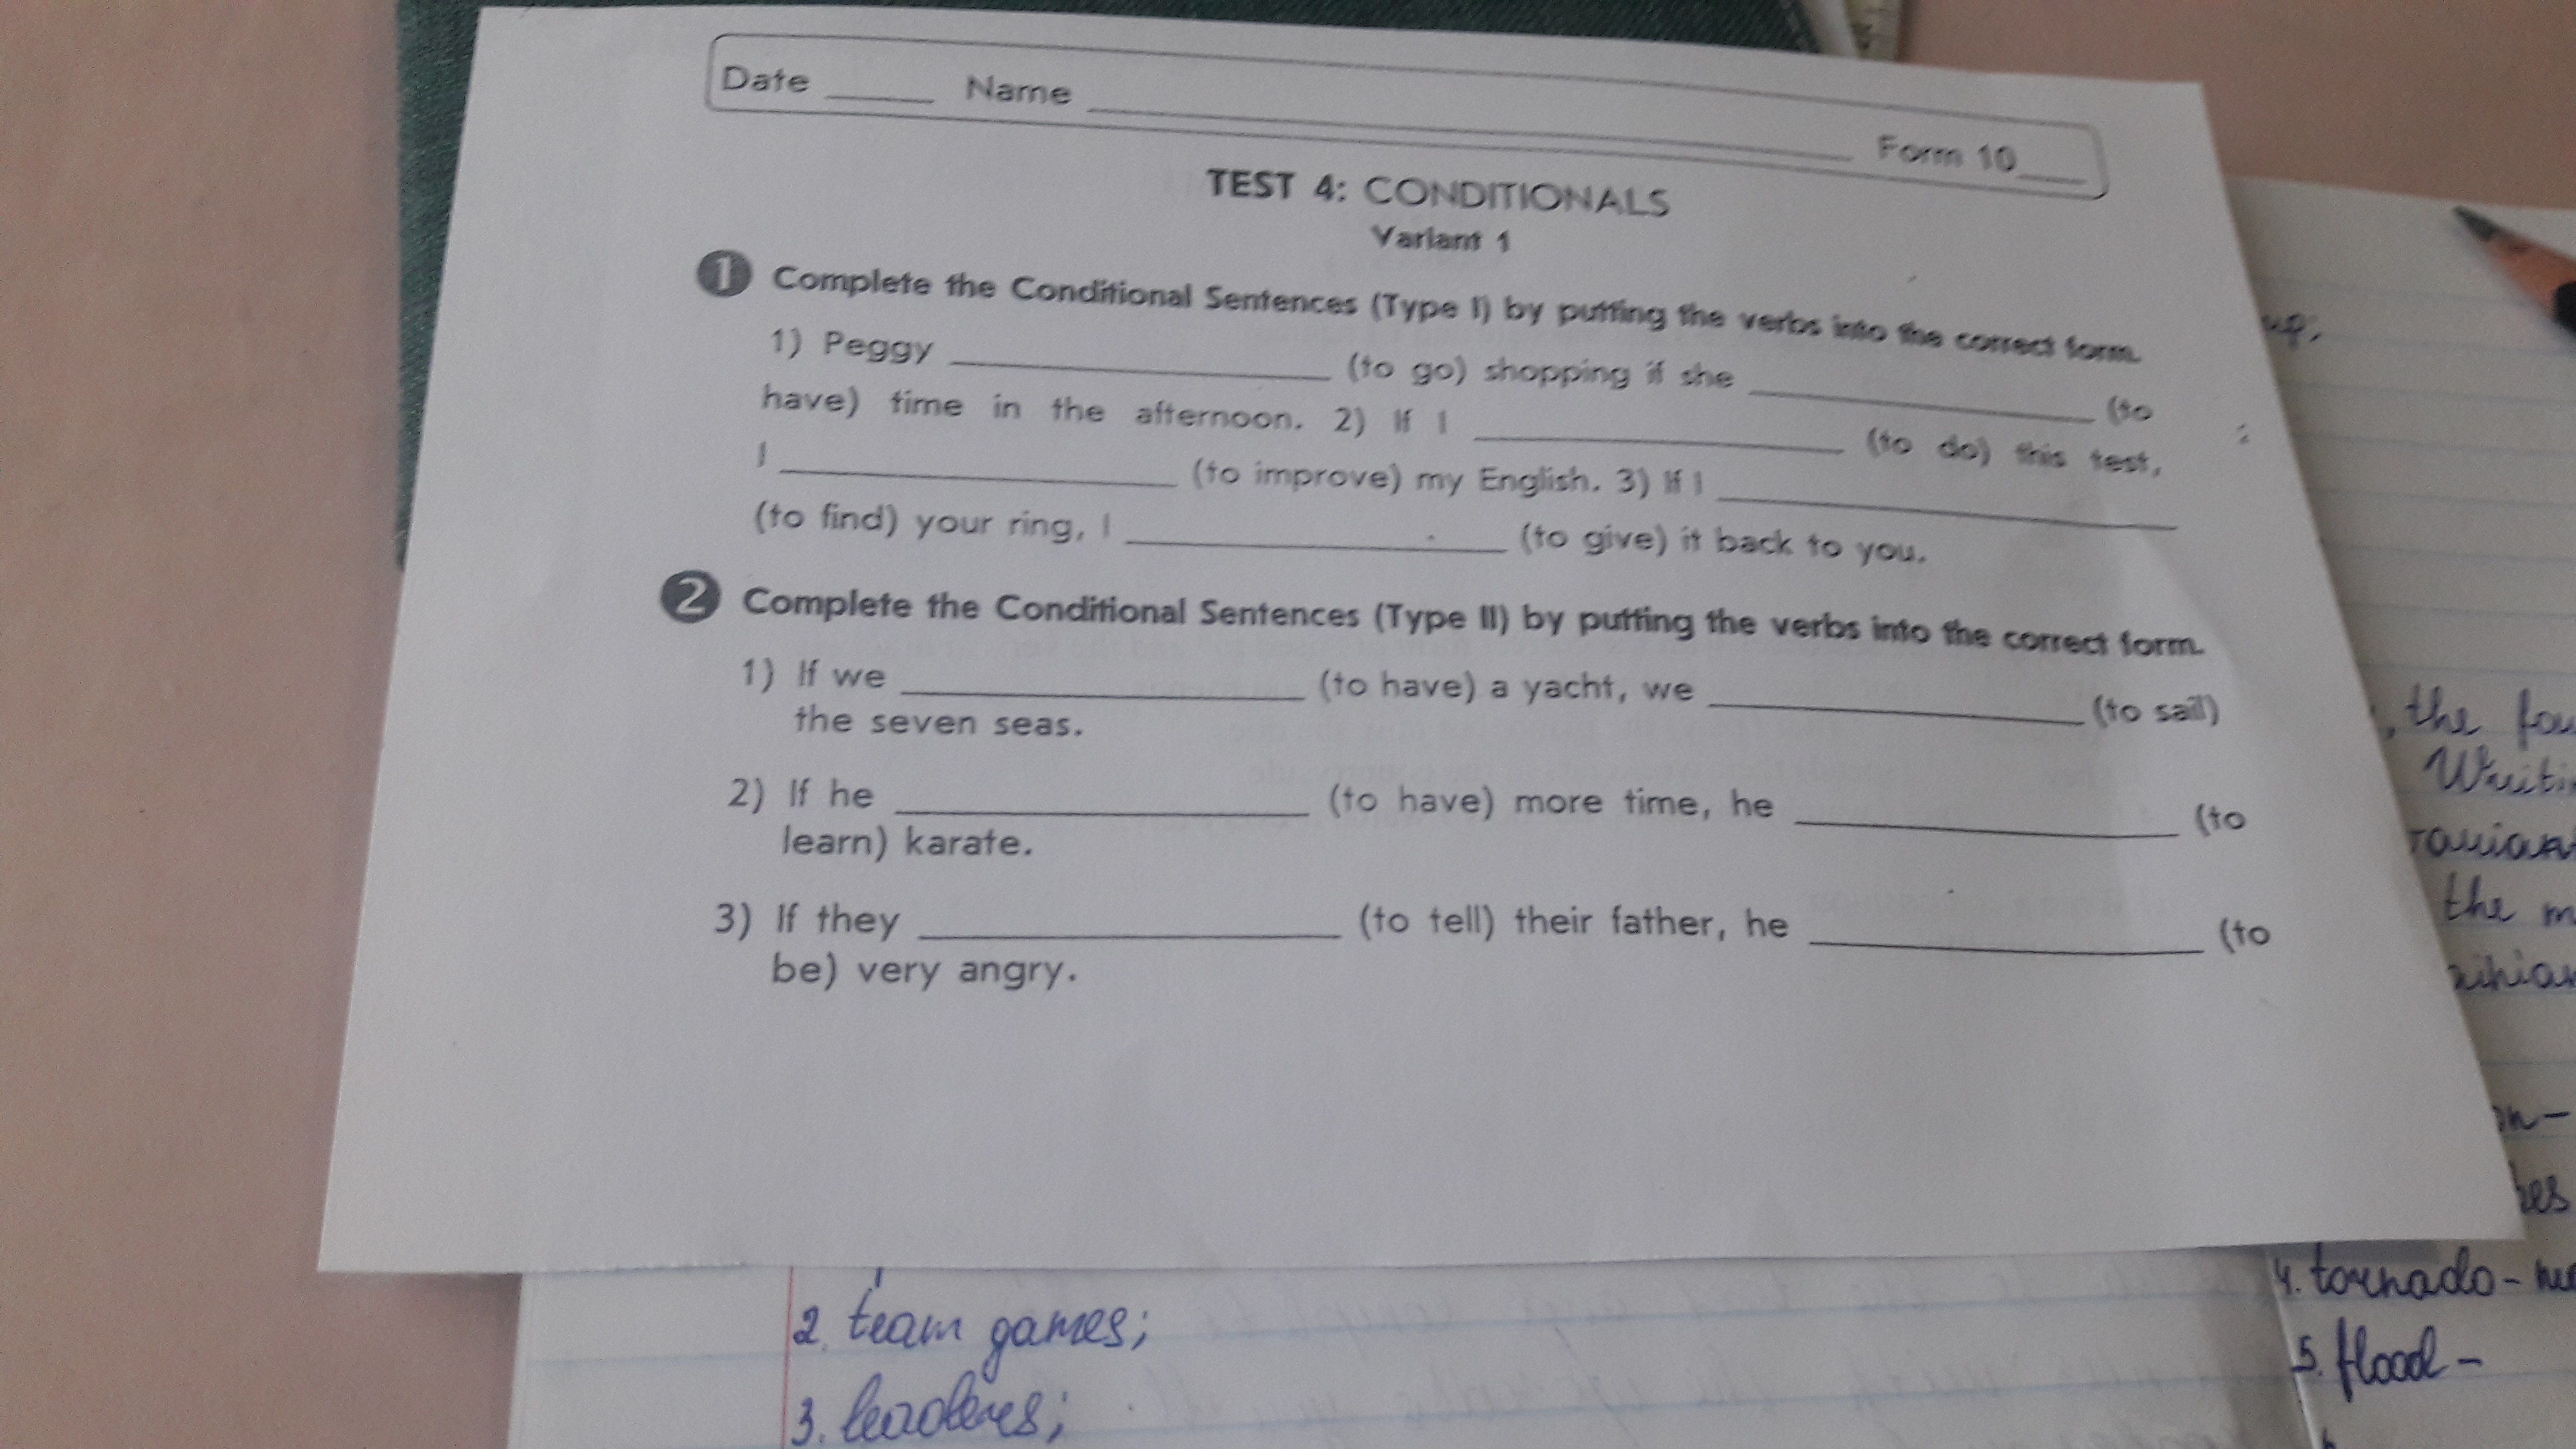 Date _____ Name _____ Form 10___
TEST 4: CONDITIONALS
Variant 1
1 Complete the Conditional Sentences (Type I) by putting the verbs into the correct form.
1) Peggy _____ (to go) shopping if she _____ (to
have) time in the afternoon. 2) If I _____ (to do) this test,
I _____ (to improve) my English. 3) If I _____
(to find) your ring, I _____ (to give) it back to you.
2 Complete the Conditional Sentences (Type II) by putting the verbs into the correct form.
1) If we _____ (to have) a yacht, we _____ (to sail)
the seven seas.
2) If he _____ (to have) more time, he _____ (to
learn) karate.
3) If they _____ (to tell) their father, he _____ (to
be) very angry.
2. team games;
3. leaders;
up;
, the
the
4. tornado -
5. flood -